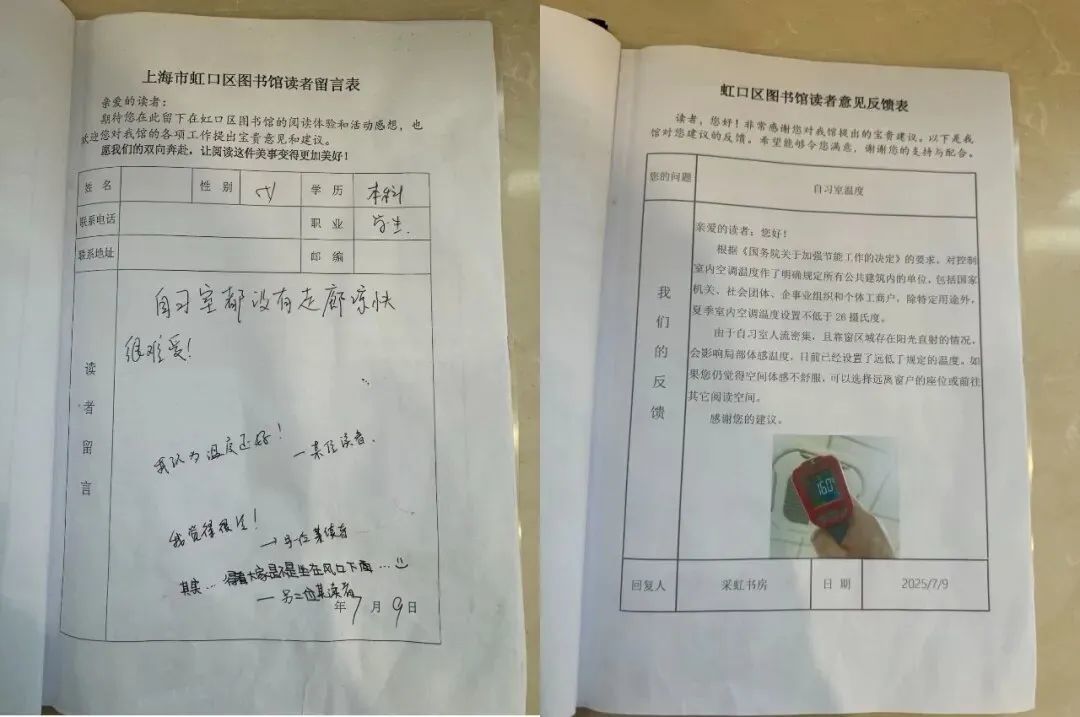 上海市虹口区图书馆读者留言表
亲爱的读者：
期待您在此留下在虹口区图书馆的阅读体验和活动感想，也
欢迎您对我馆的各项工作提出宝贵意见和建议。
愿我们的双向奔赴，让阅读这件美事变得更加美好！
姓 名 性 别 女 学 历 本科
联系电话 职 业 学生
联系地址 邮 编
读者留言
自习室都没有走廊凉快
很难受！
我认为温度还好！
—某位读者.
我觉得很冷！
→另一位某读者
其实... 得看大家是不是坐在风口下面...
— 另二位某读者
年7月9日
虹口区图书馆读者意见反馈表
读者，您好！非常感谢您对我馆提出的宝贵建议。以下是我
馆对您建议的反馈。希望能够令您满意，谢谢您的支持与配合。
您的问题 自习室温度
我们的反馈
亲爱的读者：您好！
根据《国务院关于加强节能工作的决定》的要求，对控制
室内空调温度作了明确规定所有公共建筑内的单位，包括国家
机关、社会团体、企事业组织和个体工商户，除特定用途外，
夏季室内空调温度设置不低于 26 摄氏度。
由于自习室人流密集，且靠窗区域存在阳光直射的情况，
会影响局部体感温度，目前已经设置了远低于规定的温度。如
果您仍觉得空间体感不舒服，可以选择远离窗户的座位或前往
其它阅读空间。
感谢您的建议。
16.0
回复人 采虹书房 日 期 2025/7/9